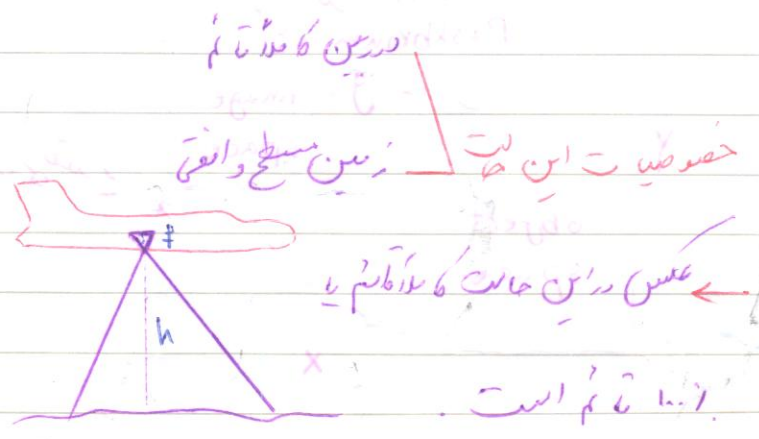 دوربین کاملاً قائم
خصوصیات این حالت
زمین مسطح و افقی
f
عکس در این حالت کاملاً قائم یا
h
قائم است.